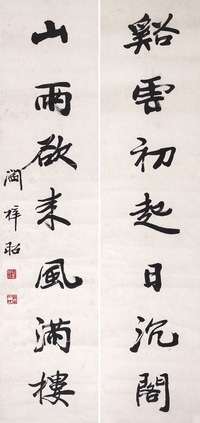 谿雲初起日沉閣
山雨欲来風滿樓
闞梓昭